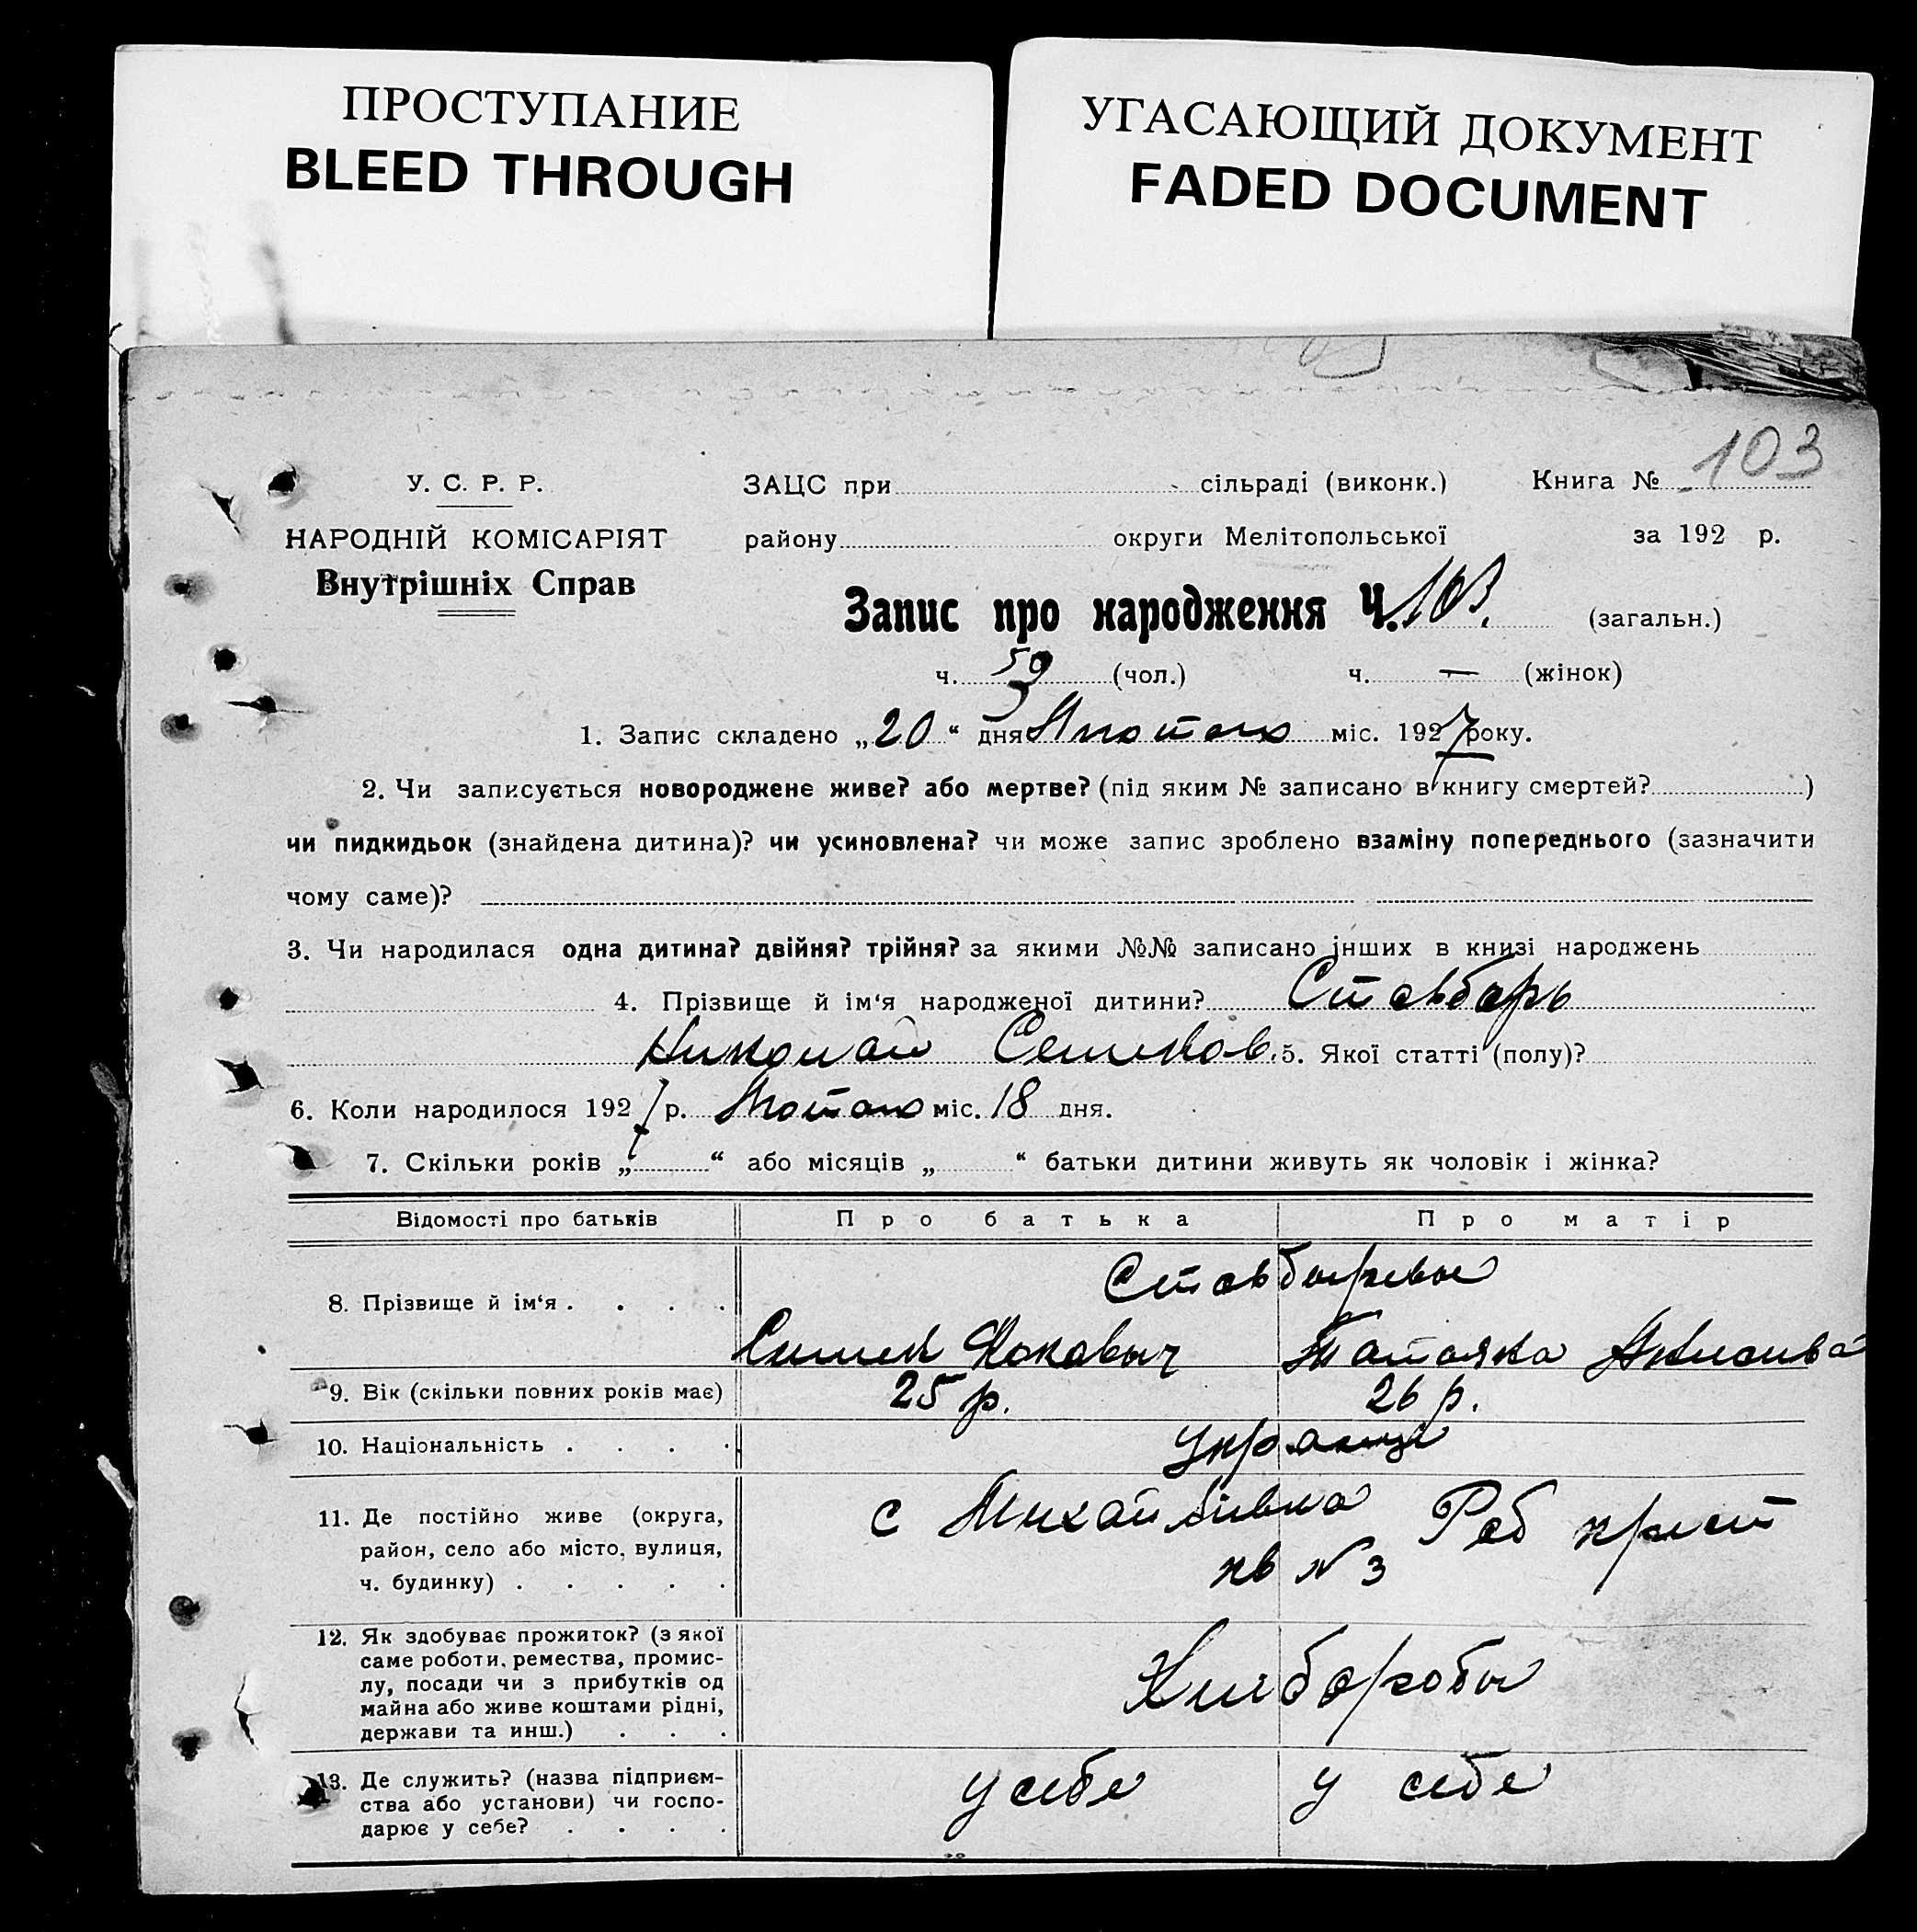 ПРОСТУПАНИЕ
BLEED THROUGH
УГАСАЮЩИЙ ДОКУМЕНТ
FADED DOCUMENT
103
У. С. Р. Р. ЗАЦС при сільраді (виконк.) Книга №
НАРОДНІЙ КОМІСАРІЯТ району округи Мелітопольської за 192 р.
Внутрішніх Справ
Запис про народження Ч. 103. (загальн.)
ч. 59 (чол.) ч. — (жінок)
1. Запис складено „20“ дня Лютого міс. 1927 року.
2. Чи записується новороджене живе? або мертве? (під яким № записано в книгу смертей? )
чи пидкидьок (знайдена дитина)? чи усиновлена? чи може запис зроблено взаміну попереднього (зазначити
чому саме)?
3. Чи народилася одна дитина? двійня? трійня? за якими №№ записано інших в книзі народжень
4. Прізвище й ім‘я народженої дитини? Ставбарь
Николай Семенов. 5. Якої статті (полу)?
6. Коли народилося 1927 р. Лютого міс. 18 дня.
7. Скільки років „ “ або місяців „ “ батьки дитини живуть як чоловік і жінка?
Відомості про батьків Про батька Про матір
8. Прізвище й ім‘я . . . .
9. Вік (скільки повних років має) 25 р. 26 р.
10. Національність . . . . Українці
11. Де постійно живе (округа, с Михайлівка Роб крест
район, село або місто, вулиця, кв № 3
ч. будинку) . . . . .
12. Як здобуває прожиток? (з якої
саме роботи, ремества, промис-
лу, посади чи з прибутків од Хлібороби
майна або живе коштами рідні,
держави та инш.) . . .
13. Де служить? (назва підприєм- у себе у себе
ства або установи) чи госпо-
дарює у себе? . . . .